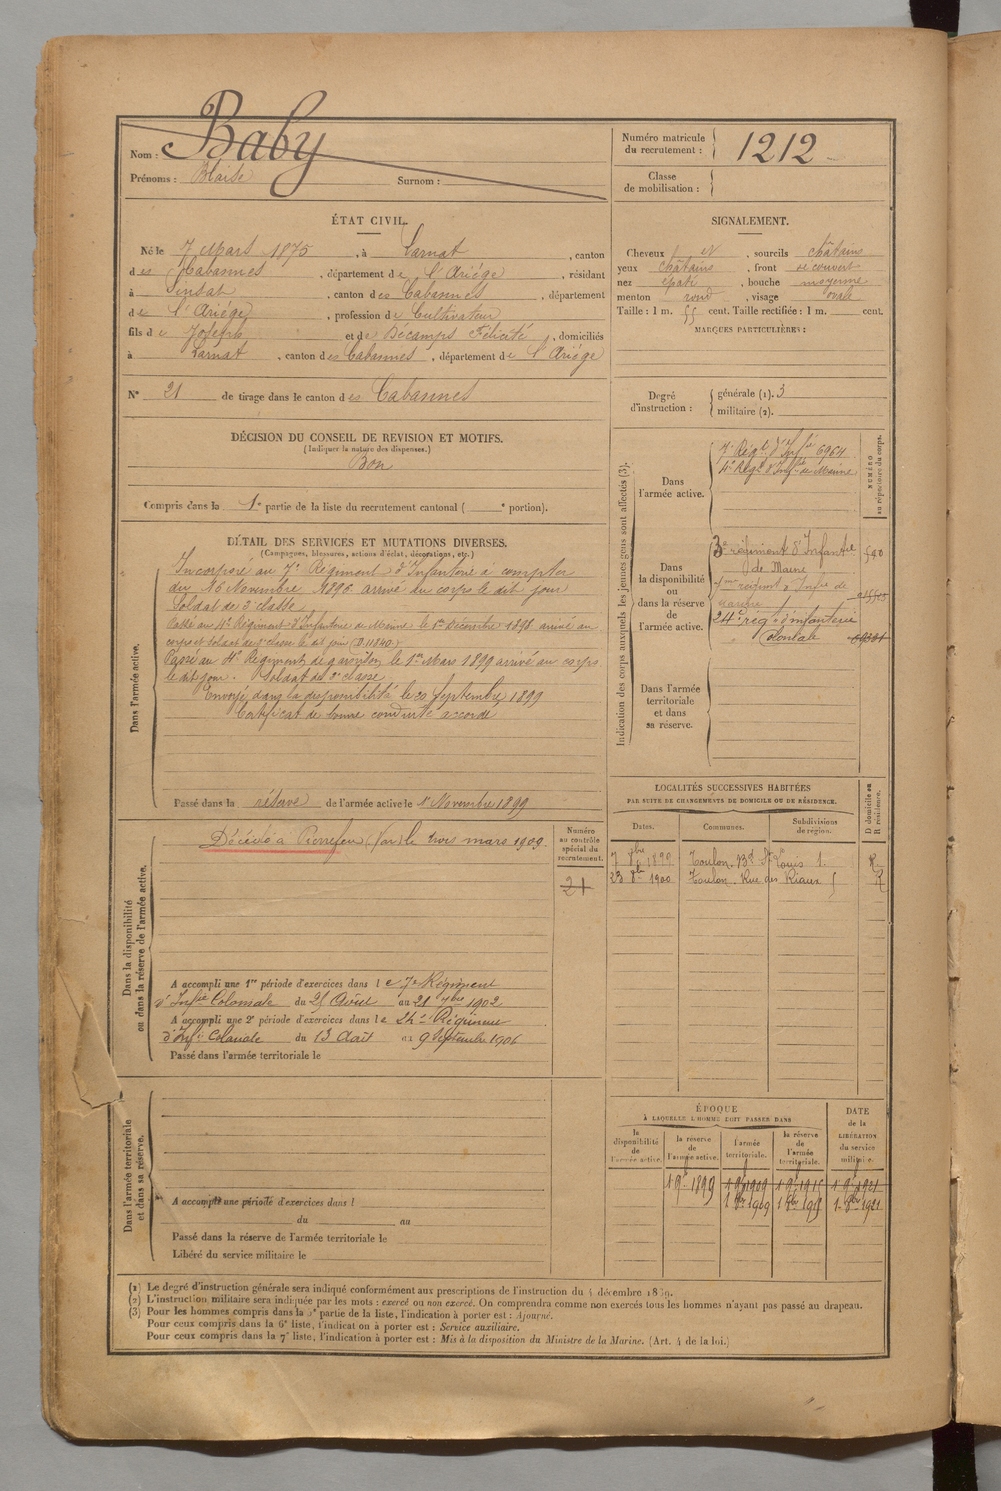 Nom : Baby
Prénoms : Blaise Surnom :
Numéro matricule du recrutement : 1212
Classe de mobilisation :
ÉTAT CIVIL.
Né le 7 Mars 1875, à Larnat, canton
des Cabannes, département de l'Ariége, résidant
à Sinsat, canton des Cabannes, département
de l'Ariége, profession de Cultivateur
fils de Joseph et de Décamps Félicité, domiciliés
à Larnat, canton des Cabannes, département de l'Ariége
N° 21 de tirage dans le canton des Cabannes
SIGNALEMENT.
Cheveux et, sourcils châtains
yeux châtains, front recouvert
nez épaté, bouche moyenne
menton rond, visage ovale
Taille : 1 m. 55 cent. Taille rectifiée : 1 m. cent.
MARQUES PARTICULIÈRES :
Degré d'instruction : générale (1). 3
militaire (2).
DÉCISION DU CONSEIL DE REVISION ET MOTIFS.
(Indiquer la nature des dispenses.)
Bon
Compris dans la 1e partie de la liste du recrutement cantonal ( e portion).
DÉTAIL DES SERVICES ET MUTATIONS DIVERSES.
(Campagnes, blessures, actions d'éclat, décorations, etc.)
Dans l'armée active.
Incorporé au 7e Régiment d'Infanterie à compter
du 16 Novembre 1896 arrivé au corps le dit jour
Soldat de 2e classe
Passé au 4e Régiment d'Infanterie de Marine le 1er Décembre 1898 arrivé au
corps et soldat de 2e classe le dit jour (D. 11840)
Passé au 4e Régiment de garnison le 1er Mars 1899 arrivé au corps
le dit jour. Soldat de 2e classe
Envoyé dans la disponibilité le 20 Septembre 1899
Certificat de bonne conduite accordé
Passé dans la réserve de l'armée active le 1er Novembre 1899
Indication des corps auxquels les jeunes gens sont affectés (3).
NUMÉRO au répertoire du corps.
Dans l'armée active.
7e Régt d'Infie 6964
4e Régt d'Infie de Marine
Dans la disponibilité ou dans la réserve de l'armée active.
3e régiment d'Infantie 590
de Marine
régiment d'Infie de
marine
24e rég. d'infanterie
Coloniale
Dans l'armée territoriale et dans sa réserve.
LOCALITÉS SUCCESSIVES HABITÉES
PAR SUITE DE CHANGEMENTS DE DOMICILE OU DE RÉSIDENCE.
Dates. Communes. Subdivisions de région. D domicile ou R résidence.
7 8bre 1899 Toulon. Bd St Louis 1. R
23 8bre 1900 Toulon. Rue des Riaux 5 R
Dans la disponibilité ou dans la réserve de l'armée active.
Numéro au contrôle spécial du recrutement.
21
Décédé à Pierrefeu (Var) le trois mars 1909
A accompli une 1re période d'exercices dans le 7e Régiment
d'Infie Coloniale du 25 Août au 21 7bre 1902
A accompli une 2e période d'exercices dans le 24e Régiment
d'Infie Coloniale du 13 Août au 9 Septembre 1906
Passé dans l'armée territoriale le
Dans l'armée territoriale et dans sa réserve.
A accompli une période d'exercices dans l
du au
Passé dans la réserve de l'armée territoriale le
Libéré du service militaire le
ÉPOQUE
À LAQUELLE L'HOMME DOIT PASSER DANS
DATE de la LIBÉRATION du service militaire.
la disponibilité de l'armée active. la réserve de l'armée active. l'armée territoriale. la réserve de l'armée territoriale.
1 9bre 1899 1 9bre 1909 1 9bre 1915 1 9bre 1921
1 8bre 1909 1 8bre 1915 1 8bre 1921
(1) Le degré d'instruction générale sera indiqué conformément aux prescriptions de l'instruction du 4 décembre 1889.
(2) L'instruction militaire sera indiquée par les mots : exercé ou non exercé. On comprendra comme non exercés tous les hommes n'ayant pas passé au drapeau.
(3) Pour les hommes compris dans la 5e partie de la liste, l'indication à porter est : Ajourné.
Pour ceux compris dans la 6e liste, l'indication à porter est : Service auxiliaire.
Pour ceux compris dans la 7e liste, l'indication à porter est : Mis à la disposition du Ministre de la Marine. (Art. 4 de la loi.)